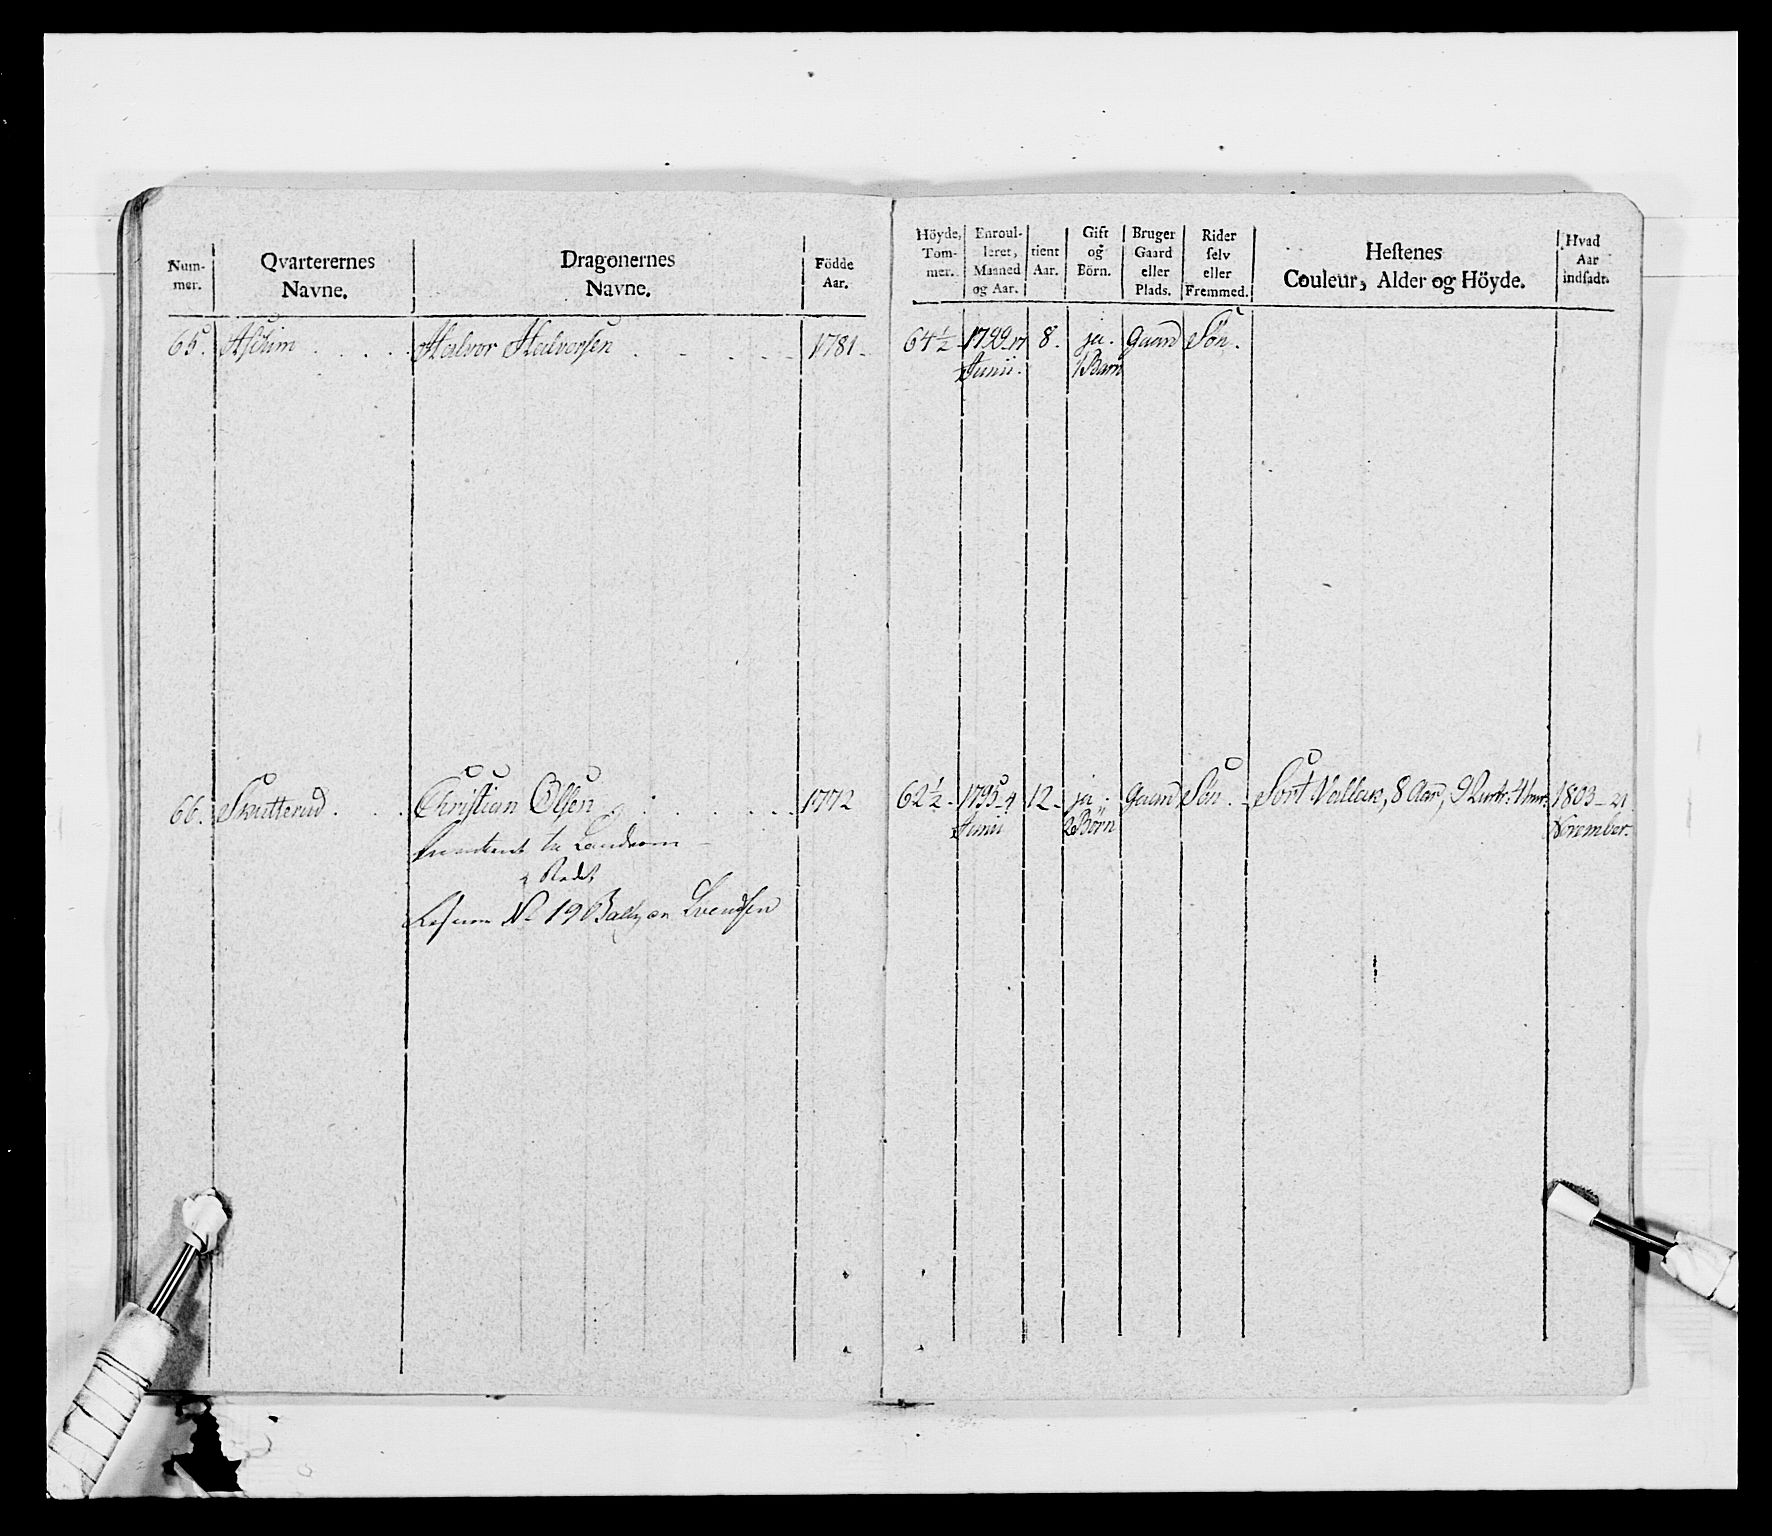 Num-
mer.
Qvarterernes
Navne.
Dragonernes
Navne.
Födde
Aar.
Höyde,
Tom-
mer.
Enroul-
leret,
Maaned
og Aar.
tient
Aar.
Gift
og
Börn.
Bruger
Gaard
eller
Plads.
Rider
selv
eller
Fremmed.
Hestenes
Couleur, Alder og Höyde.
Hvad
Aar
indsadt.
65. Aschim . . . . Halvor Halvorsen . . . . 1781. 64½ 1799 17 8. ja. Gaard Søn.
Junii. 1 Barn
66. Skutterud . . Christian Olsen . . . . 1772 62½ 1795 4 12. ja. Gaard Søn. Sort Vallak, 8 Aar, 9 Qvart: 4 tom: 1803 - 21
Junii 2 Børn November.
No 19 Svendsen